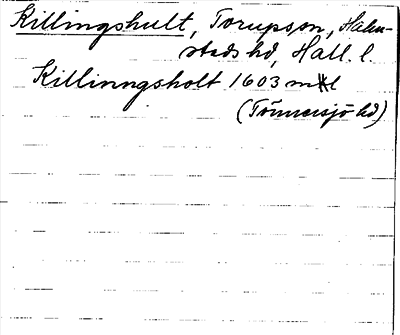 Killingshult, Torups sn, Halm-
stads hd, Hall. l.
Killinngsholt 1603 mtl
(Tönnersjö hd)